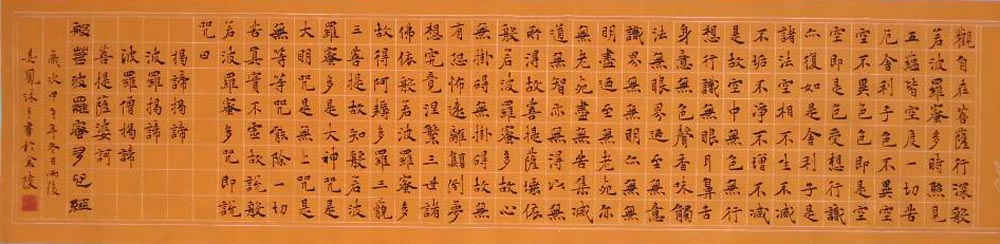 觀自在菩薩行深般
若波羅蜜多時照見
五蘊皆空度一切苦
厄舍利子色不異空
空不異色色即是空
空即是色受想行識
亦復如是舍利子是
諸法空相不生不滅
不垢不淨不增不減
是故空中無色無受
想行識無眼耳鼻舌
身意無色聲香味觸
法無眼界乃至無意
識界無無明亦無無
明盡乃至無老死亦
無老死盡無苦集滅
道無智亦無得以無
所得故菩提薩埵依
般若波羅蜜多故心
無掛礙無掛礙故無
有恐怖遠離顛倒夢
想究竟涅槃三世諸
佛依般若波羅蜜多
故得阿耨多羅三藐
三菩提故知般若波
羅蜜多是大神咒是
大明咒是無上咒是
無等等咒能除一切
苦真實不虛故說般
若波羅蜜多咒即說
咒曰
揭諦揭諦
波羅揭諦
波羅僧揭諦
菩提薩婆訶
般若波羅蜜多心經
歲次甲午年冬月雨後
書於金陵